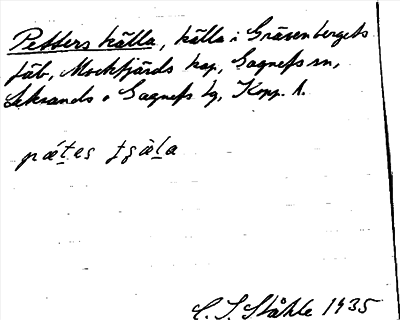 Petters källa, källa i Gräsenbergets
fäb, Mockfjärds kap, Gagnefs sn,
Leksands o Gagnefs tg, Kopp. l.
C. I. Ståhle 1935